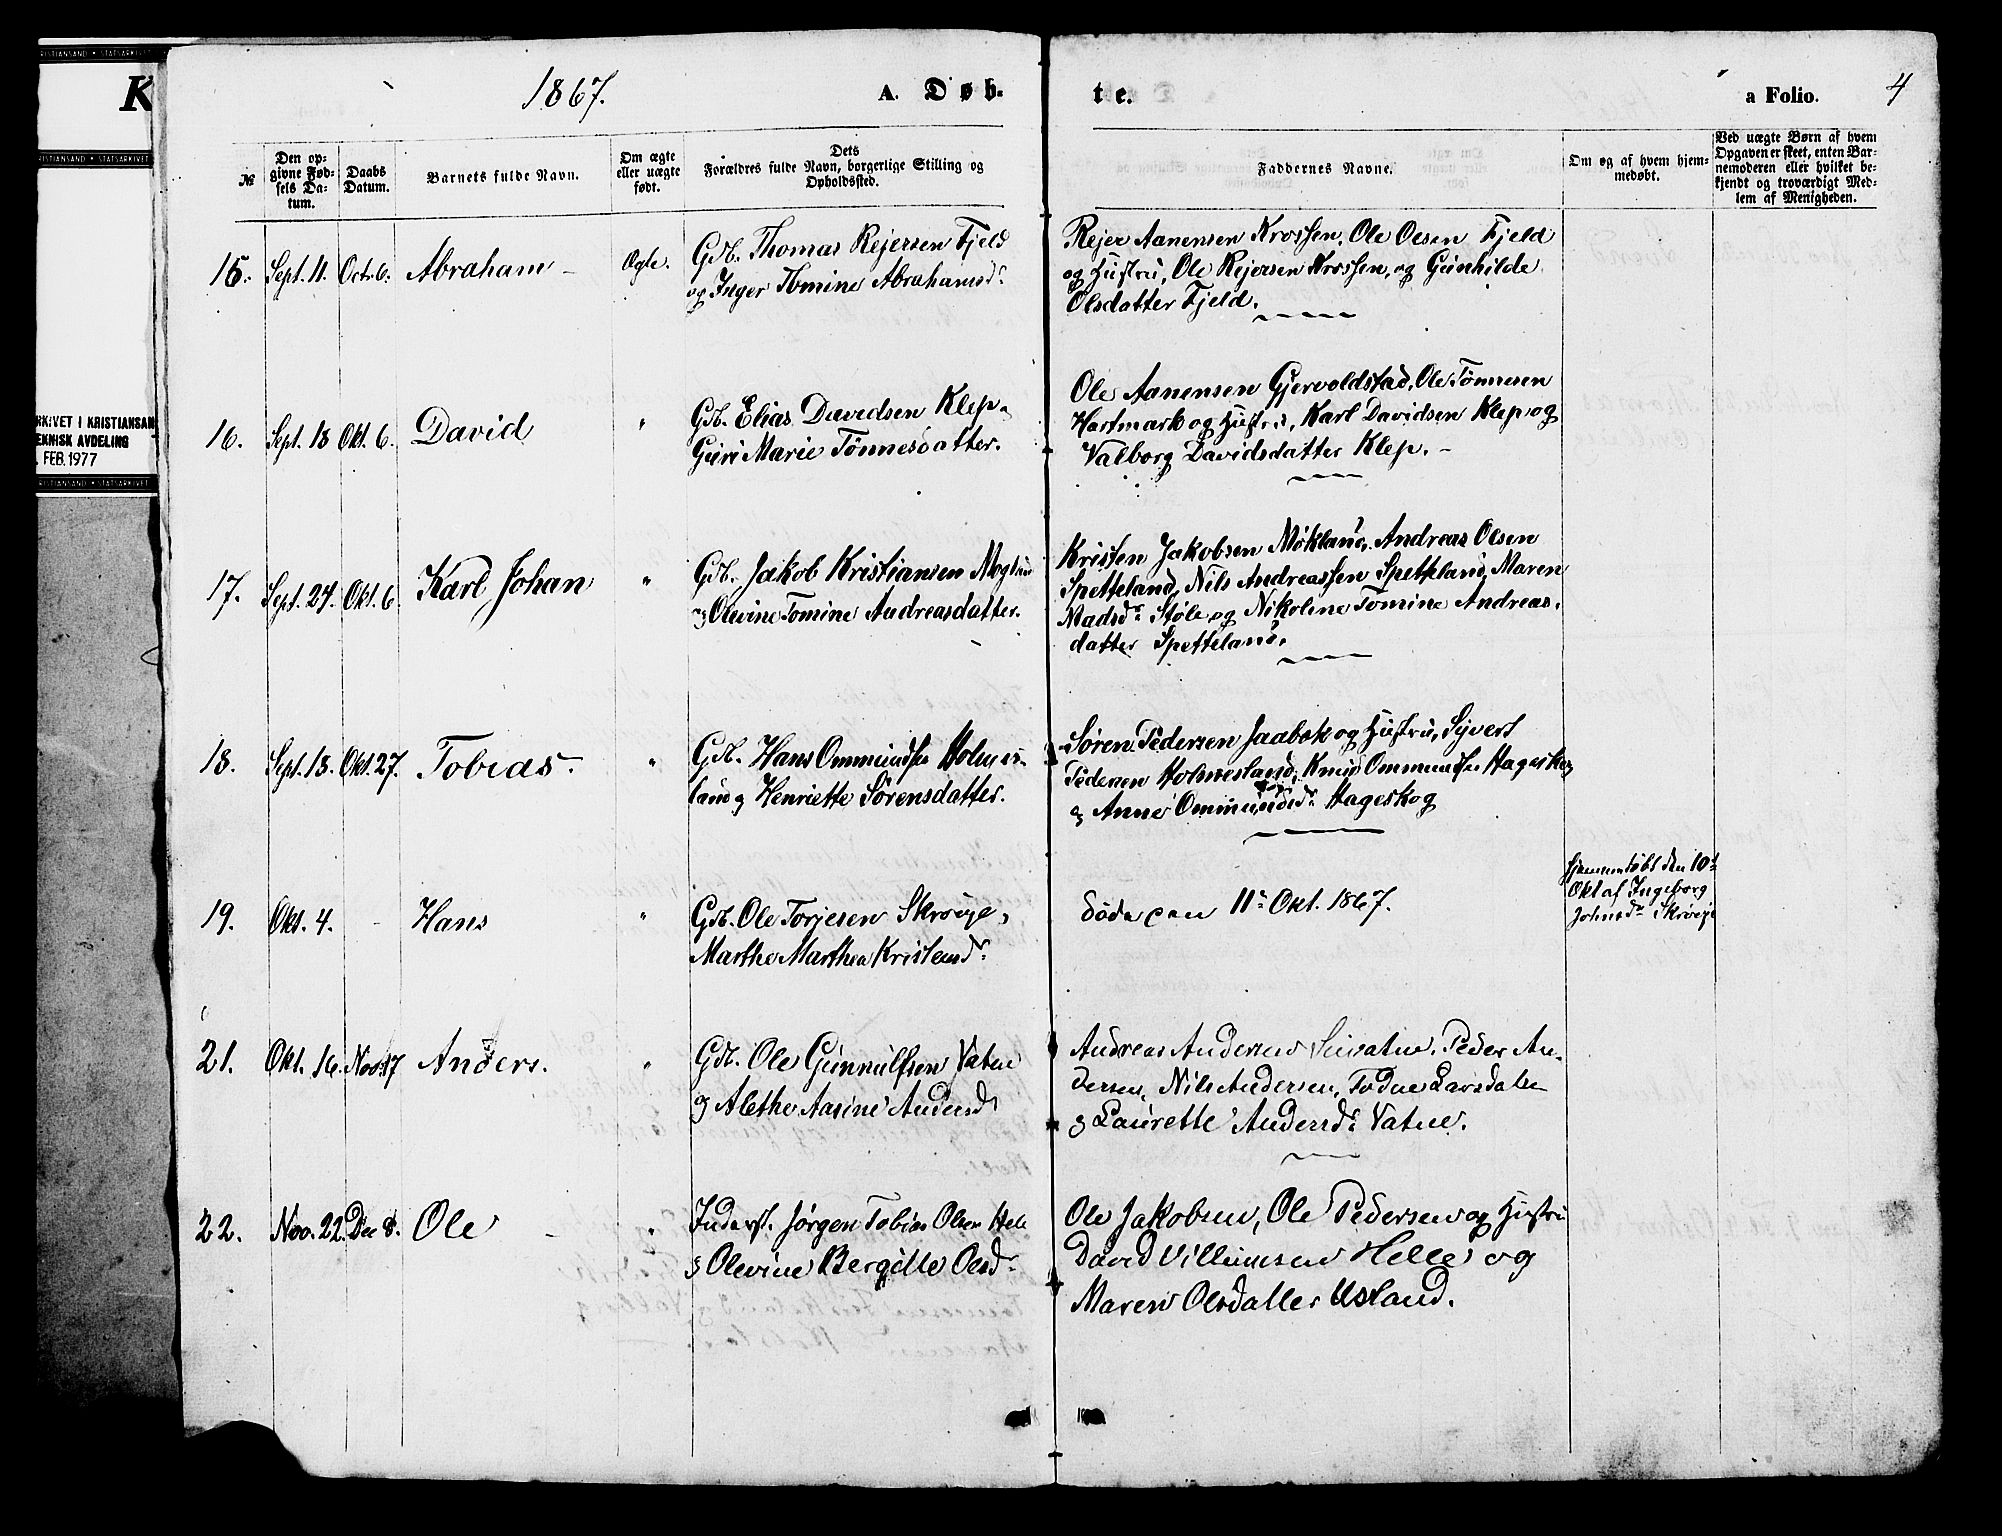 RISTIANSAND • STATSARKIVET
K
RISTIANSAND • STATSARKIVET
RKIVET I KRISTIANSAN
EKNISK AVDELING
. FEB. 1977
RISTIANSAND • STATSARKIVET
1867.
A. Døb-
te.
a Folio. 4
№
Den op-
givne Fød-
sels Da-
tum.
Daabs
Datum.
Barnets fulde Navn.
Om ægte
eller uægte
født.
Dets
Forældres fulde Navn, borgerlige Stilling og
Opholdssted.
Faddernes Navne.
Om og af hvem hjem-
medøbt.
Ved uægte Børn af hvem
Opgaven er skeet, enten Bar-
nemoderen eller hvilket be-
kjendt og troværdigt Med-
lem af Menigheden.
15. Sept. 11. Oct. 6. Abraham – Ægte.
Gdb. Thomas Rejersen Fjeld
og Inger Tomine Abrahamsdr.
Rejer Aanensen Krossen, Ole Olsen Fjeld
og Hustru, Ole Rejersen Krossen, og Gunhilde
Olsdatter Fjeld.
16. Sept. 18 Okt. 6. David "
Gdb. Elias Davidsen Klep
Guri Marie Tönnesdatter.
Ole Aanensen Gjervoldstad, Ole Tönnesen
Hartmark og Hustru, Karl Davidsen Klep og
Valborg Davidsdatter Klep. –
17. Sept. 27. Okt. 6. Karl Johan "
Gdb. Jakob Kristiansen
og Olevine Tomine Andreasdatter.
Kristen Jakobsen Mökland, Andreas Olsen
Spetteland, Nils Andreassen Spetteland, Maren
Madsdr. Støle og Nikoline Tomine Andreas-
datter Spetteland.
18. Sept. 13. Okt. 27. Tobias. "
Gdb. Hans Ommundsen Holmes-
land og Henriette Sörensdatter.
Søren Pedersen Jaabæk og Hustru, Syvert
Pedersen Holmesland, Knud Ommundsen Hageskog
og Anne Ommundsdr. Hageskog
19. Okt. 4. – Hans "
Gdb. Ole Torjesen Skrøvje,
Marthe Marthea Kristensdr.
døde den 11te Okt. 1867.
hjemmedöbt den 10de
Okt af Ingeborg
Johnsdr. Skrövje
21. Okt. 16. Nov. 17 Anders. "
Gdb. Ole Gunnulfsen Vatne
og Alethe Aasine Andersdr
Andreas Andersen Peder An-
dersen, Nils Andersen, Todne Larsdatter
og Laurette Andersdr. Vatne.
22. Nov. 22. Dec 8. Ole "
Inderst. Jørgen Tobias Olsen Helle
og Olevine Bergitte Olsdr.
Ole Jakobsen, Ole Pedersen og Hustru
David Villumsen Helle og
Maren Olsdatter Usland.